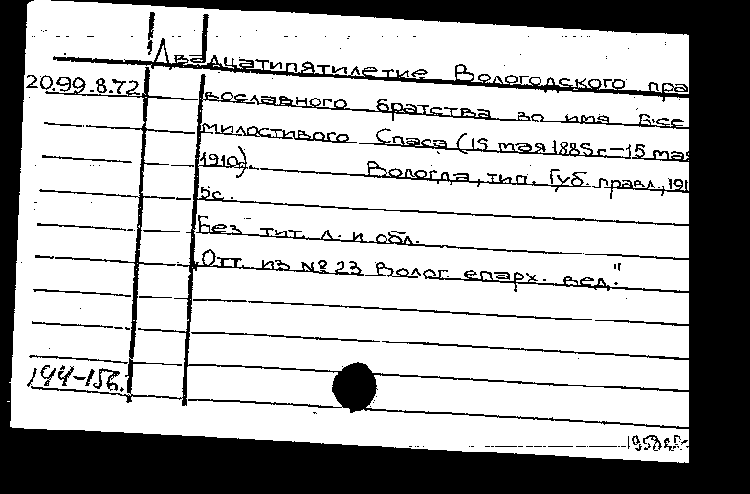 Двадцатипятилетие Вологодского пра
20.99.8.72
вославного братства во имя Все
милостивого Спаса (15 мая 1885 г. — 15 мая
1910г.). Вологда, тип. Губ. правл., 191
5с.
Без тит. л. и обл.
"Отт. из № 23 Волог. епарх. вед."
144-15в.